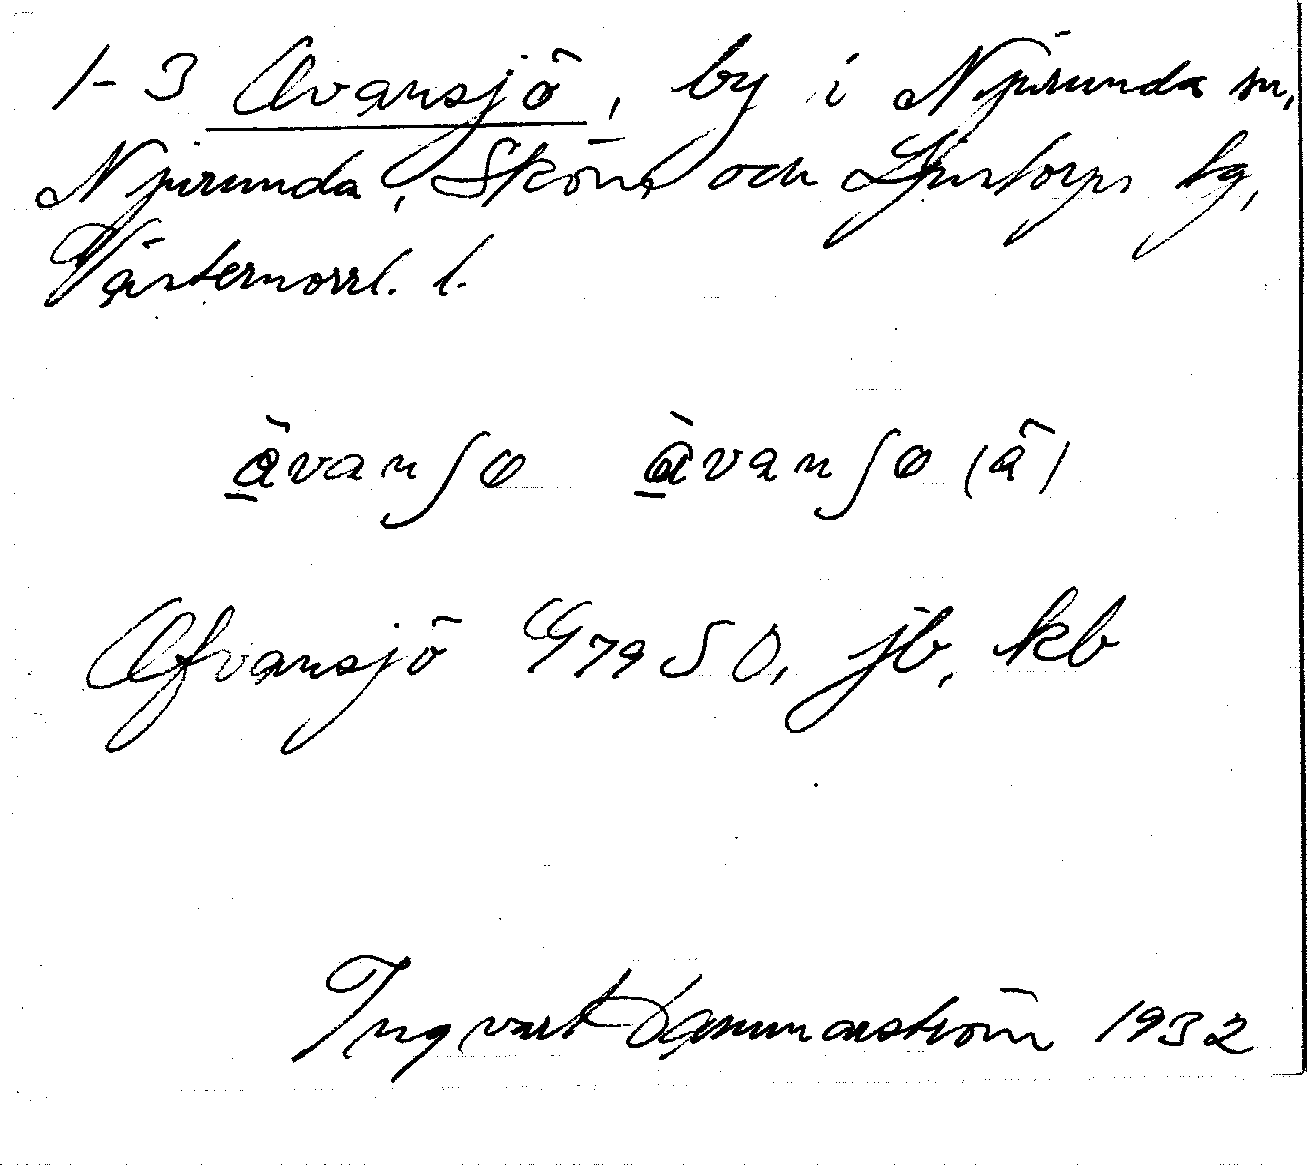 1-3 Avansjö, by i Njurunda sn,
Njurunda, Sköns och Ljustorps tg,
Västernorrl. l.
àvanʃo àvanʃo (â)
Afvansjö jb, kb
Ingvart Hammarström 1932